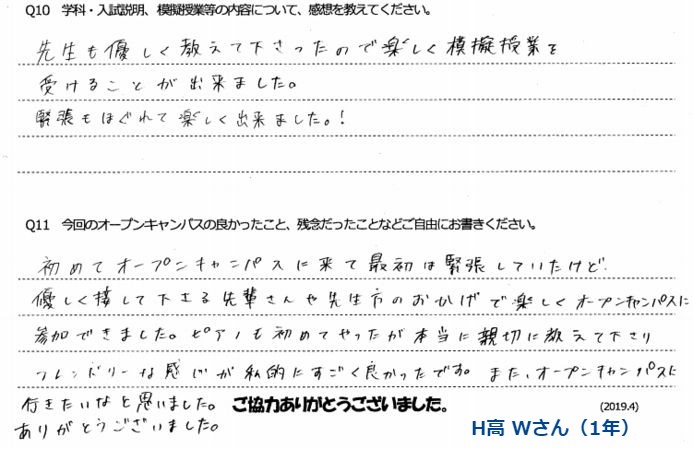 Q10 学科・入試説明、模擬授業等の内容について、感想を教えてください。
先生も優しく教えて下さったので楽しく模擬授業を
受けることが出来ました。
緊張もほぐれて楽しく出来ました。!
Q11 今回のオープンキャンパスの良かったこと、残念だったことなどご自由にお書きください。
初めてオープンキャンパスに来て最初は緊張していたけど、
優しく接して下さる先輩さんや先生方のおかげで楽しくオープンキャンパスに
参加できました。ピアノも初めてやったが本当に親切に教えて下さり
フレンドリーな感じが私的にすごく良かったです。また、オープンキャンパスに
行きたいなと思いました。 ご協力ありがとうございました。 (2019.4)
ありがとうございました。
H高 Wさん(1年)